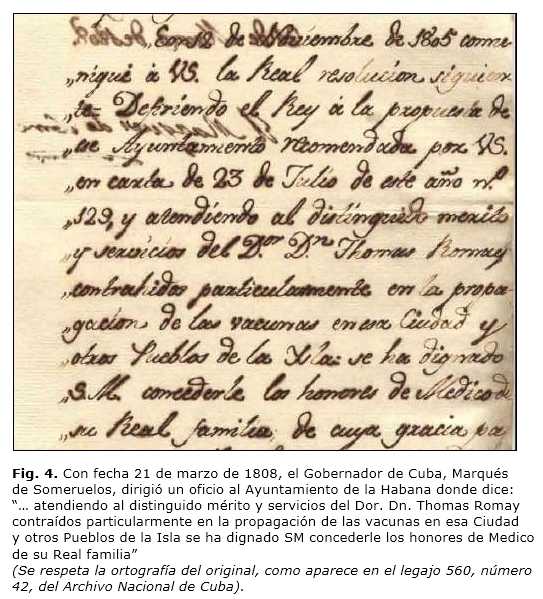 „En 12 de Noviembre de 1805 comu-
„niqué à VS. la Real resolucion siguien
„te= Defiriendo el Rey à la propuesta de
„ese Ayuntamiento recomendada por VS.
„en carta de 23 de Julio de este año n.º
„129, y atendiendo al distinguido merito
„y servicios del D.or D.n Thomas Romay
„contrahidos particularmente en la propa-
„gacion de las vacunas en esa Ciudad y
„otros Pueblos de la Isla: se ha dignado
„S.M. concederle los honores de Medico de
„su Real familia; de cuya gracia pa
Fig. 4. Con fecha 21 de marzo de 1808, el Gobernador de Cuba, Marqués
de Someruelos, dirigió un oficio al Ayuntamiento de la Habana donde dice:
“... atendiendo al distinguido mérito y servicios del Dor. Dn. Thomas Romay
contraídos particularmente en la propagación de las vacunas en esa Ciudad
y otros Pueblos de la Isla se ha dignado SM concederle los honores de Medico
de su Real familia”
(Se respeta la ortografía del original, como aparece en el legajo 560, número
42, del Archivo Nacional de Cuba).